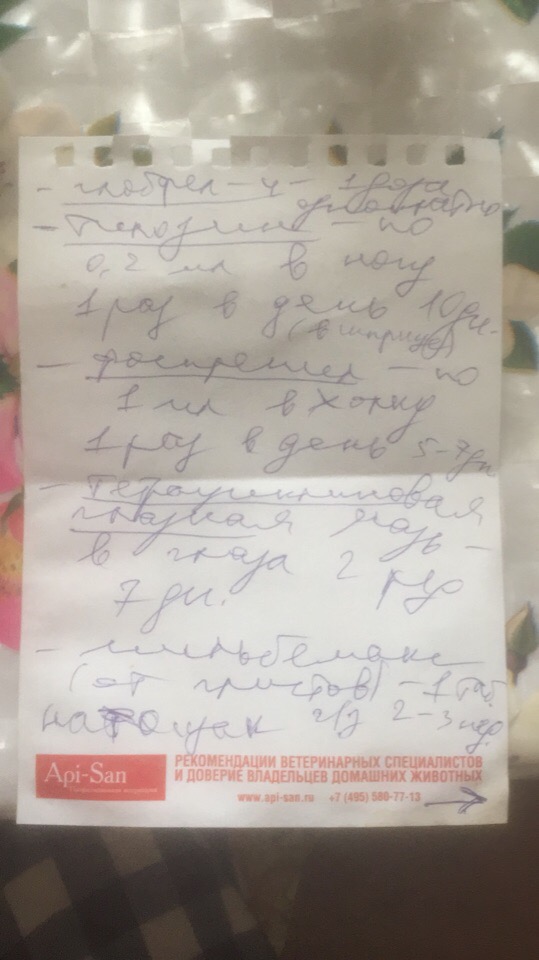 - глобфел-4 - 1 доза
однократно
- Тилозин - по
0,2 мл в ногу
1 раз в день 10 дн.
(в шприце)
- фоспренил - по
1 мл в холку
1 раз в день 5-7 дн
- Тетрациклиновая
глазная мазь -
в глаза 2 р/д
7 дн.
- мильбемакс
(от глистов) - 1 таб.
натощак ч/з 2-3 нед.
Api-San
РЕКОМЕНДАЦИИ ВЕТЕРИНАРНЫХ СПЕЦИАЛИСТОВ
И ДОВЕРИЕ ВЛАДЕЛЬЦЕВ ДОМАШНИХ ЖИВОТНЫХ
www.api-san.ru +7 (495) 580-77-13